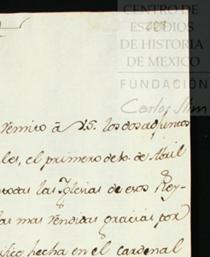 CENTRO DE
ESTUDIOS
DE HISTORIA
DE MEXICO
FUNDACIÓN
Carlos Slim
remito à VS. los dos adjuntos
les, el primero de 10. de Abril
todas las Iglesias de esos Rey-
las mas rendidas gracias por
ifico hecha en el cardenal